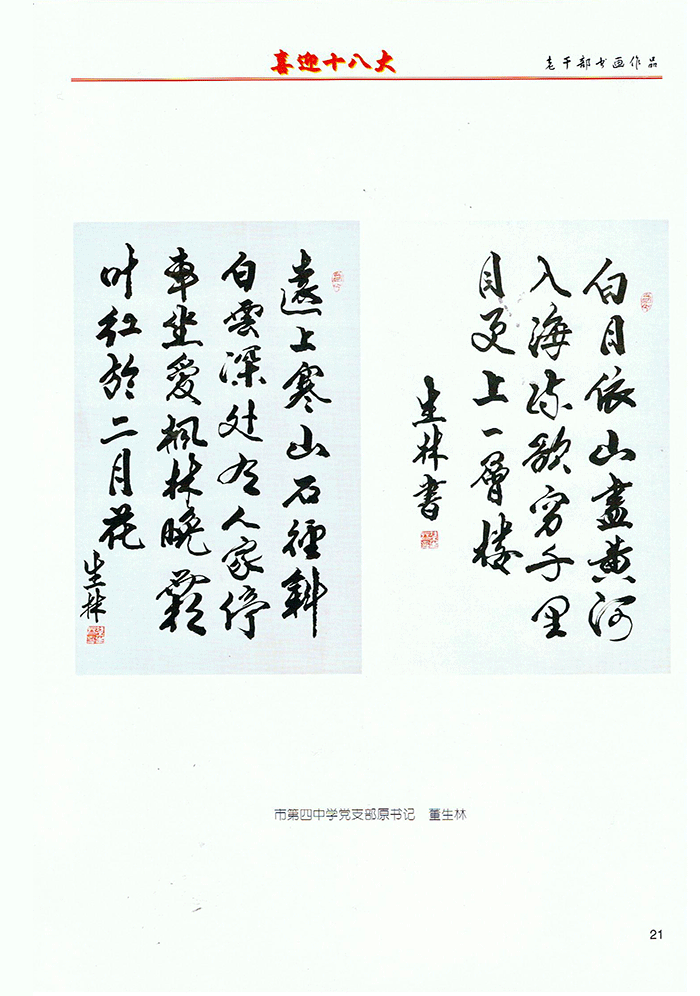 喜迎十八大
老干部书画作品
白日依山盡黄河
入海流欲穷千里
目更上一層楼
生林書
遠上寒山石徑斜
白雲深处有人家停
車坐愛枫林晚霜
叶红於二月花
生林
市第四中学党支部原书记 董生林
21